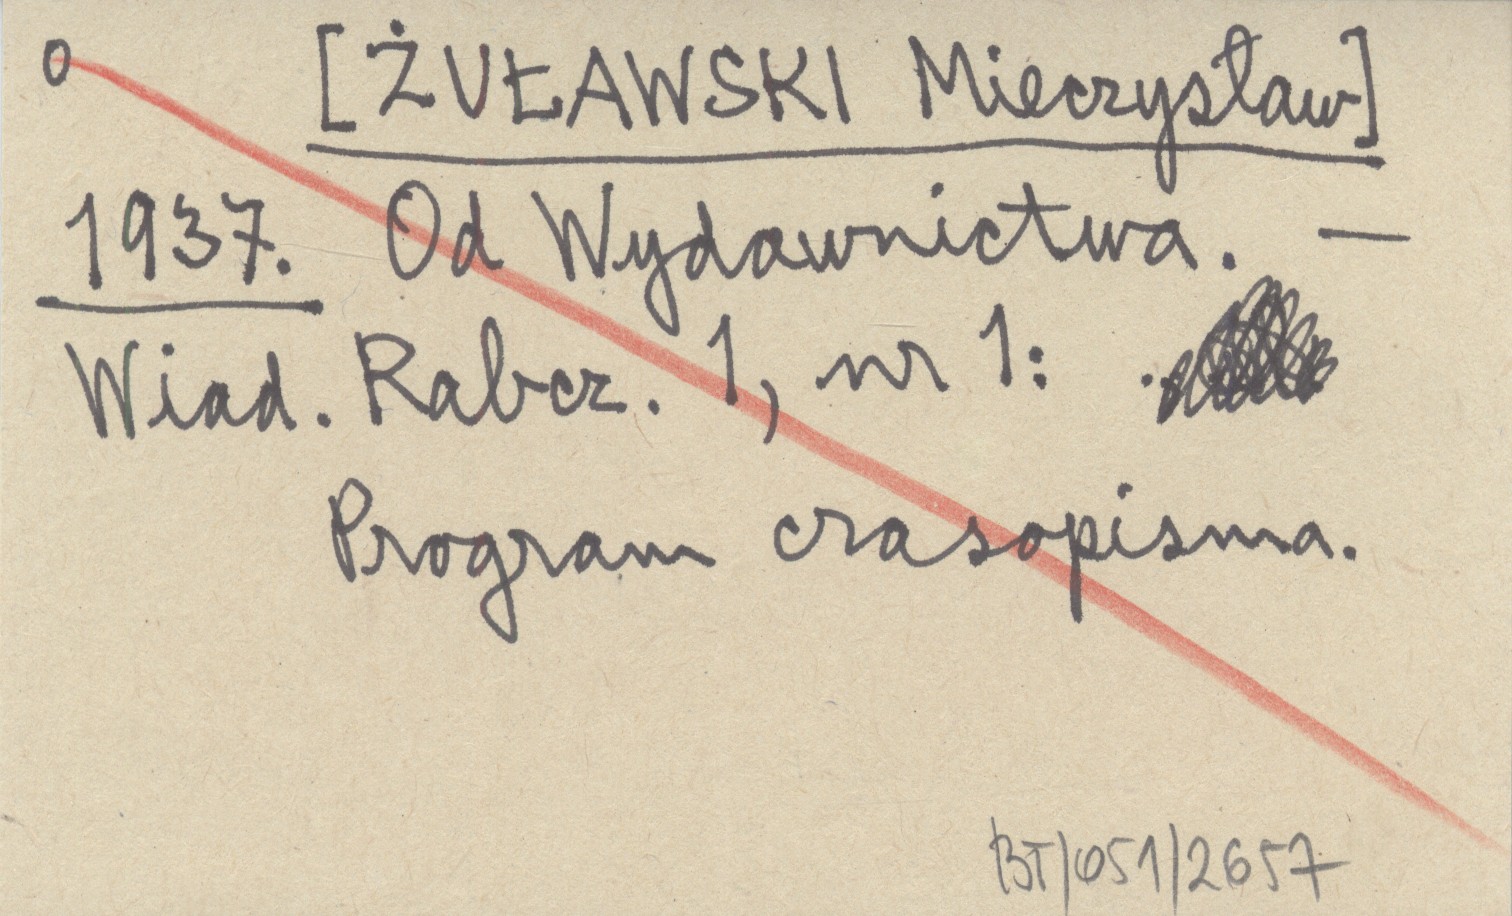 0 [ŻUŁAWSKI Mieczysław]
1937. Od Wydawnictwa. —
Wiad. Rabcz. 1, nr 1:
Program czasopisma.
BT/051/2657